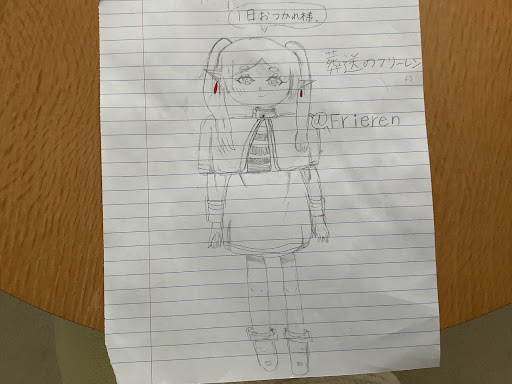 1日おつかれ様。
葬送のフリーレン
@Frieren